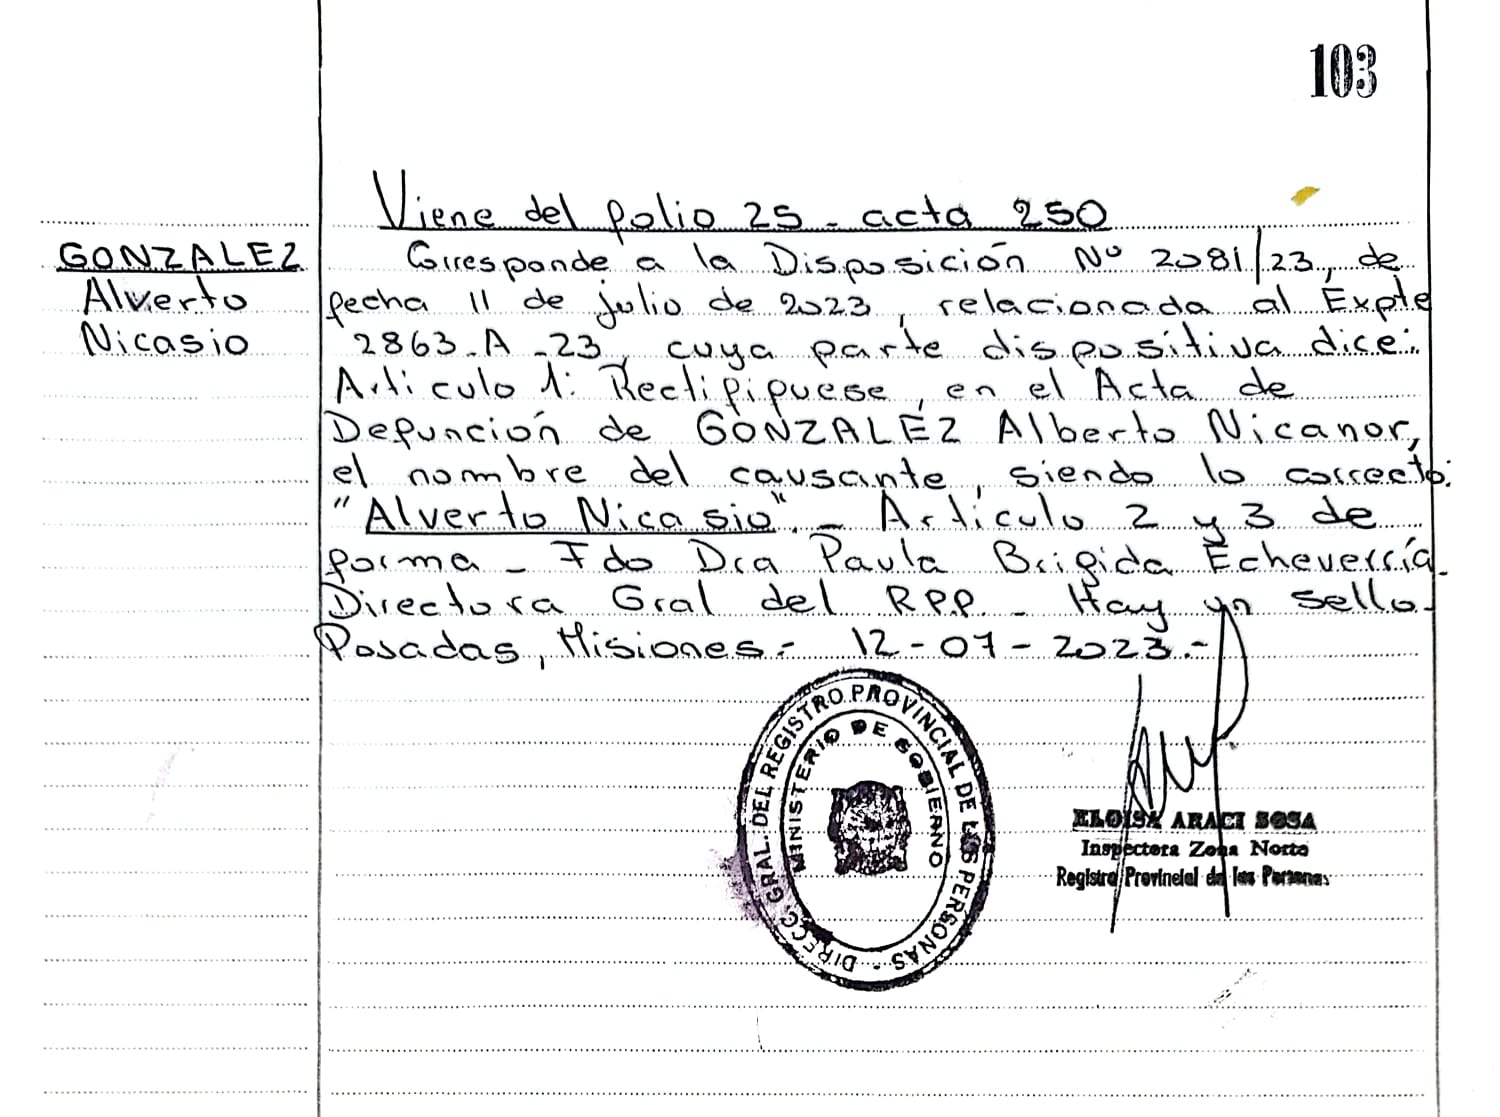 103
Viene del folio 25 - acta 250
GONZALEZ
Alverto
Nicasio
Corresponde a la Disposición Nº 2081/23, de
fecha 11 de julio de 2023, relacionada al Expte
2863-A-23, cuya parte dispositiva dice:
Artículo 1: Rectifíquese, en el Acta de
Defunción de GONZALEZ Alberto Nicanor,
el nombre del causante, siendo lo correcto:
"Alverto Nicasio". - Artículo 2 y 3 de
forma - Fdo Dra Paula Brigida Echeverría -
Directora Gral del R.P.P. - Hay un sello -
Posadas, Misiones - 12-07-2023.-
DIRECC. GRAL. DEL REGISTRO PROVINCIAL DE LAS PERSONAS -
MINISTERIO DE GOBIERNO
ELOISA ARACI SOSA
Inspectora Zona Norte
Registro Provincial de las Personas